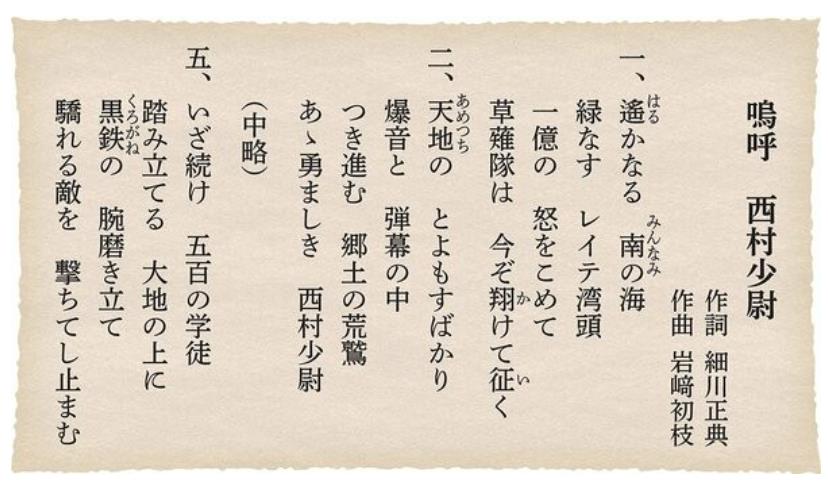 嗚呼　西村少尉
作詞　細川正典
作曲　岩﨑初枝
一、遙かなる　南の海
緑なす　レイテ湾頭
一億の　怒をこめて
草薙隊は　今ぞ翔けて征く
二、天地の　とよもすばかり
爆音と　弾幕の中
つき進む　郷土の荒鷲
あゝ勇ましき　西村少尉
（中略）
五、いざ続け　五百の学徒
踏み立てる　大地の上に
黒鉄の　腕磨き立て
驕れる敵を　撃ちてし止まむ
はる
みんなみ
か
い
あめつち
くろがね